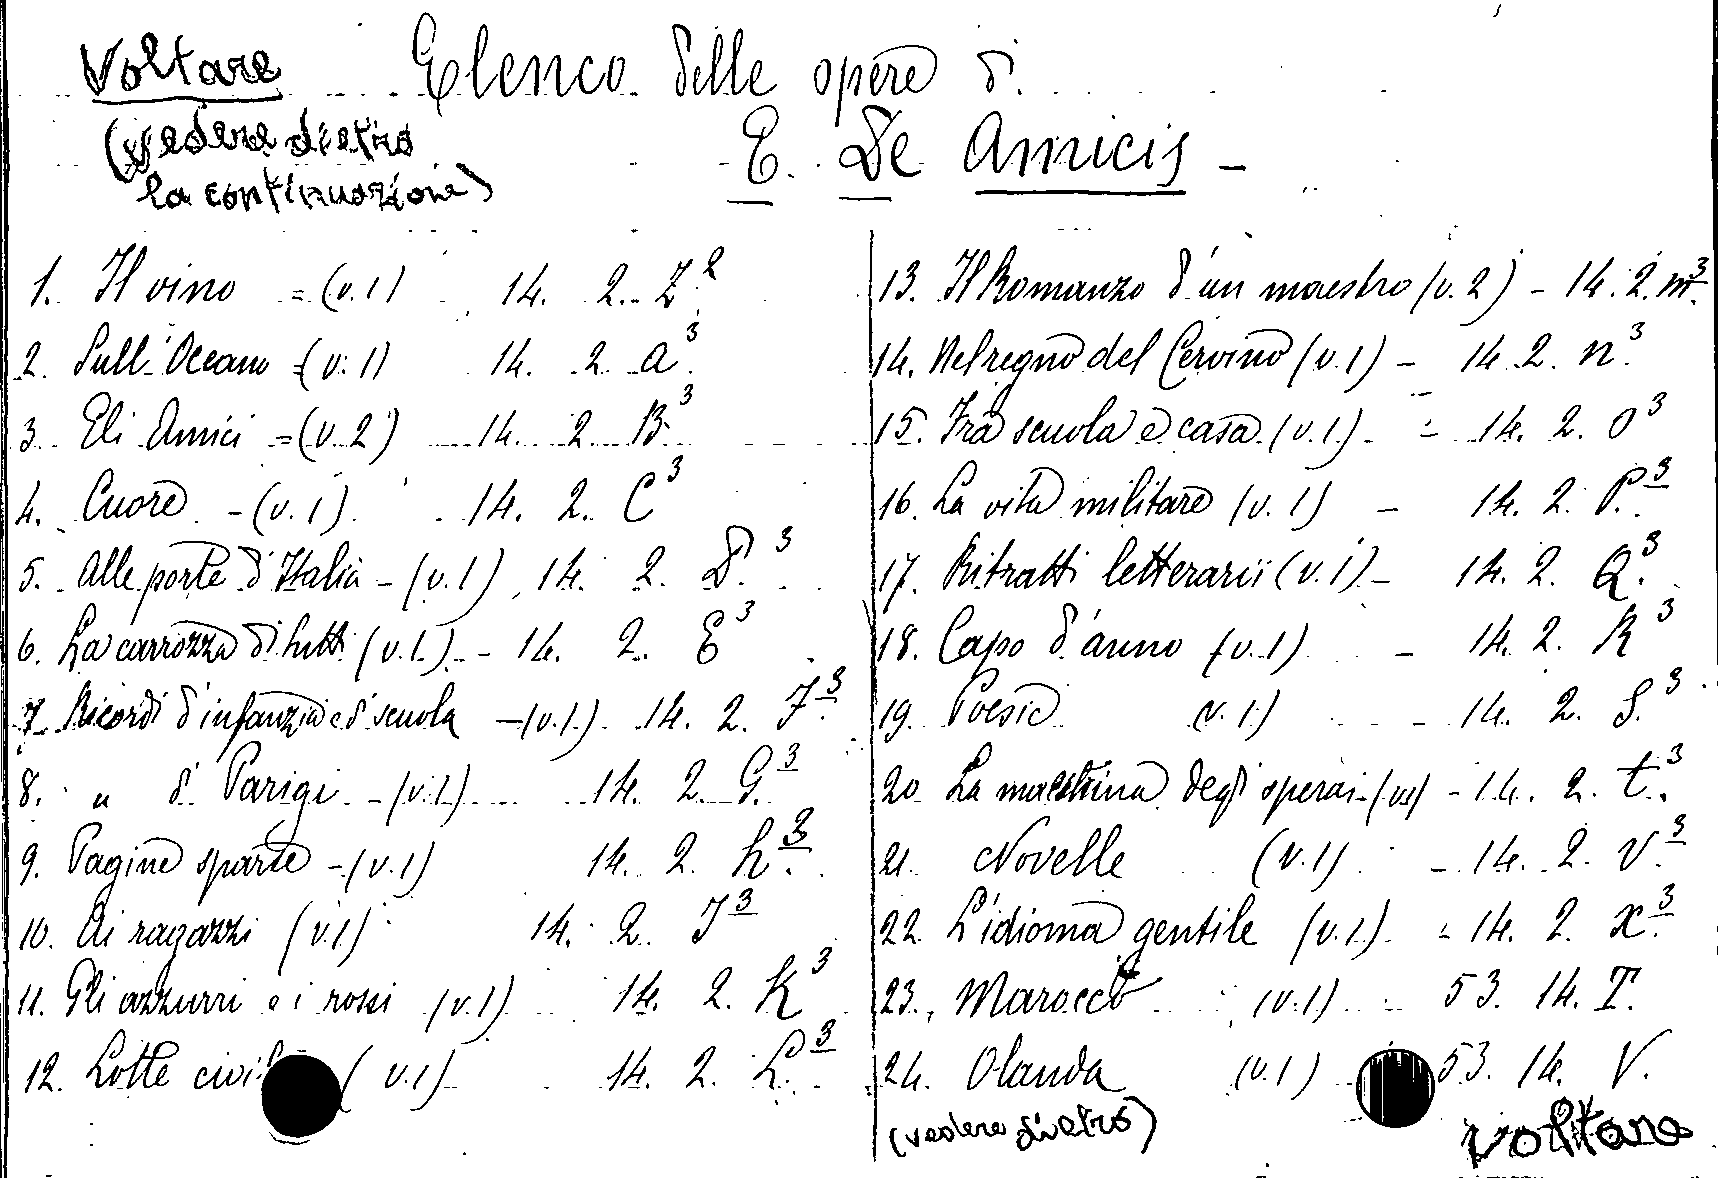 Voltare
(vedere dietro
la continuazione)
Elenco delle opere di
E. De Amicis -
1. Il vino = (v. 1) 14. 2. Z²
2. Sull'Oceano = (v. 1) 14. 2 a³
3. Gli Amici = (v. 2) 14. 2. B³
4. Cuore - (v. 1) 14. 2. C³
5. Alle porte d'Italia - (v. 1) 14. 2. D³
6. La carrozza di tutti (v. 1.) - 14. 2. E³
7. Ricordi d'infanzia e di scuola - (v. 1.) 14. 2. F³
8. " di Parigi - (v. 1) 14. 2 G³
9. Pagine sparse - (v. 1) 14. 2. h³
10. Ai ragazzi (v. 1) 14. 2. J³
11. Gli azzurri e i rossi (v. 1) 14. 2. K³
12. Lotte civil (v. 1) 14. 2. L³
13. Il Romanzo d'un maestro (v. 2) - 14. 2. m³
14. Nel regno del Cervino (v. 1) - 14. 2. n³
15. Fra scuola e casa (v. 1.) - 14. 2. o³
16. La vita militare (v. 1) - 14. 2. P³
17. Ritratti letterarii (v. 1) - 14. 2. Q³
18. Capo d'anno (v. 1) - 14. 2. R³
19. Poesie (v. 1) - 14. 2. S³
20. La macchina degli operai - 14. 2. t³
21 Novelle (v. 1) - 14. 2. V³
22. L'idioma gentile (v. 1.) - 14. 2. x³
23. Marocco (v. 1) - 53. 14. T.
24. Olanda (v. 1) 53. 14. V.
(vedere dietro)
voltare